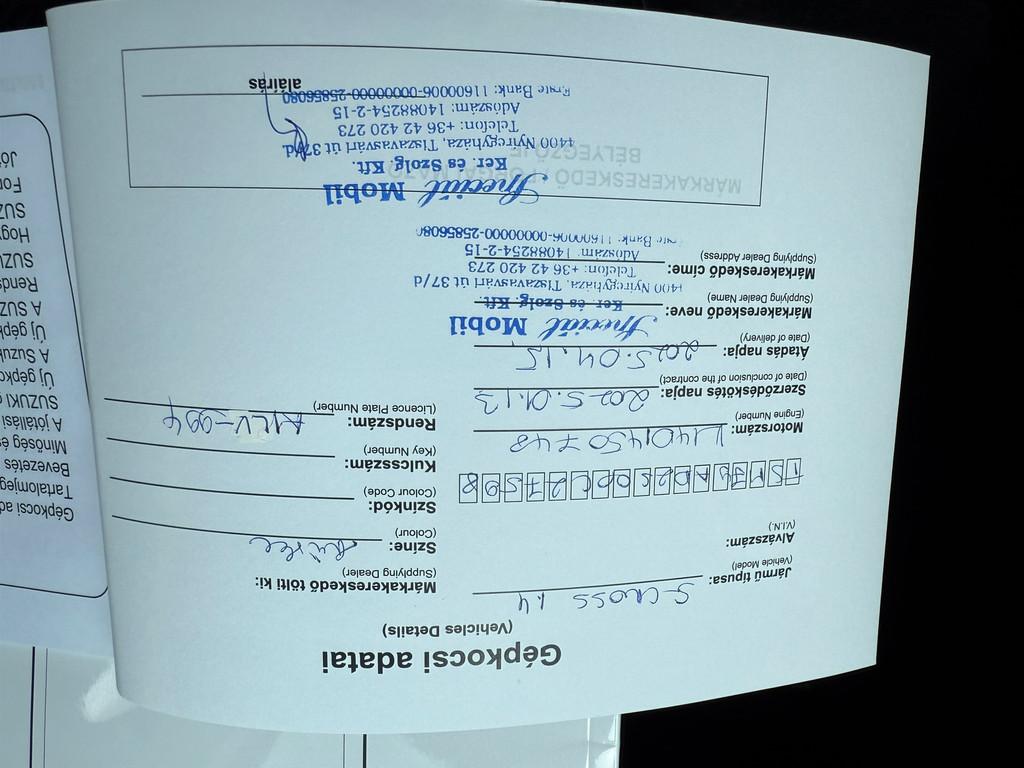 Gépkocsi adatai
(Vehicles Details)
Jármű típusa: S-CROSS 1.4
(Vehicle Model)
Alvázszám:
(V.I.N.)
Motorszám:
(Engine Number)
Szerződéskötés napja: 2025.01.13
(Date of conclusion of the contract)
Átadás napja: 2025.04.15.
(Date of delivery)
Márkakereskedő neve:
(Supplying Dealer Name)
Márkakereskedő címe:
(Supplying Dealer Address)
Speciál Mobil
Ker. és Szolg. Kft.
4400 Nyíregyháza, Tiszavasvári út 37/d
Telefon: +36 42 420 273
Adószám: 14088254-2-15
Erste Bank: 11600006-00000000-25856080
Márkakereskedő tölti ki:
(Supplying Dealer)
Színe:
(Colour)
Színkód:
(Colour Code)
Kulcsszám:
(Key Number)
Rendszám:
(Licence Plate Number)
MÁRKAKERESKEDŐ / FORGALMAZÓ
BÉLYEGZŐJE
Speciál Mobil
Ker. és Szolg. Kft.
4400 Nyíregyháza, Tiszavasvári út 37/d.
Telefon: +36 42 420 273
Adószám: 14088254-2-15
Erste Bank: 11600006-00000000-25856080
aláírás
Gépkocsi ad
Tartalomjeg
Bevezetés
Minőség és
A jótállási
SUZUKI
Új gépko
A Suzuk
Új gépk
A SUZ
Rends
SUZU
Hogy
SUZ
For
Jót